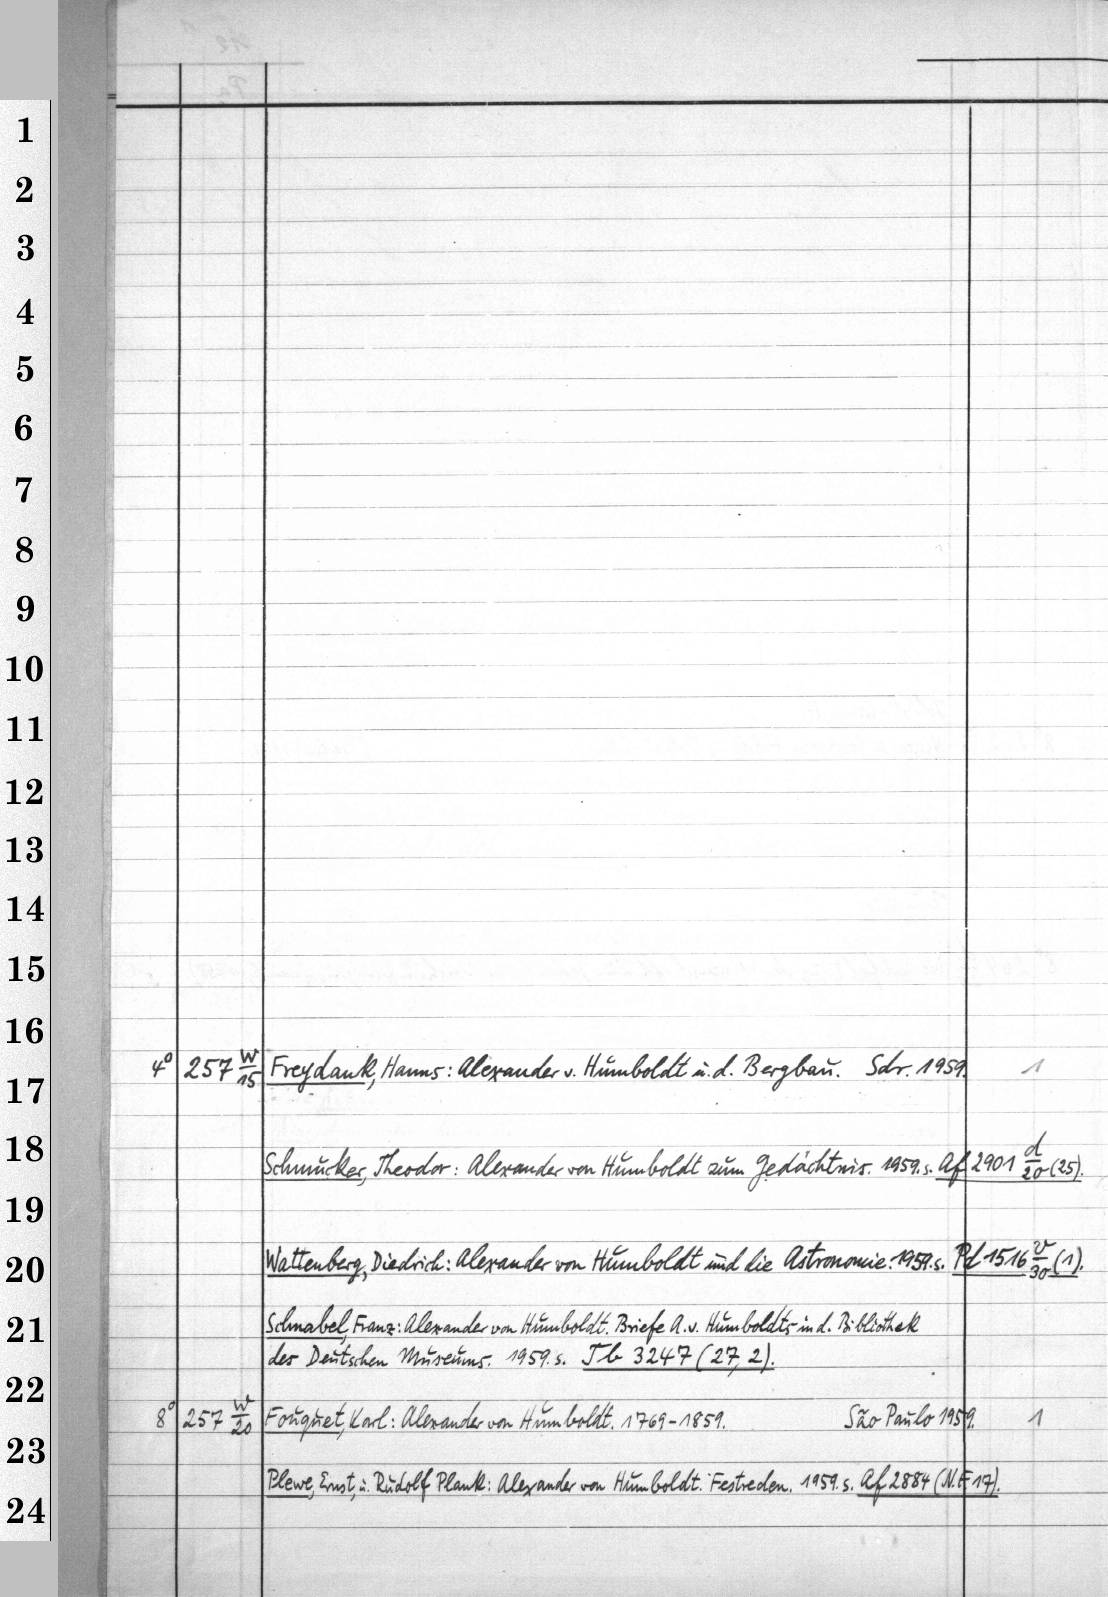 1
2
3
4
5
6
7
8
9
10
11
12
13
14
15
16
17
18
19
20
21
22
23
24
4° 257 W/15 Freydank, Hanns: Alexander v. Humboldt u. d. Bergbau. Sdr. 1959. 1
Schmucker, Theodor: Alexander von Humboldt zum Gedächtnis. 1959. s. Af 2901 d/20 (25).
Wattenberg, Diedrich: Alexander von Humboldt und die Astronomie. 1959. s. Pd 1516 v/30 (1).
Schnabel, Franz: Alexander von Humboldt. Briefe A. v. Humboldts in d. Bibliothek
des Deutschen Museums. 1959. s. Tb 3247 (27, 2).
8° 257 W/20 Fouquet, Karl: Alexander von Humboldt. 1769-1859. São Paulo 1959. 1
Plewe, Ernst, u. Rudolf Plank: Alexander von Humboldt. Festreden. 1959. s. Af 2884 (N.F. 17).